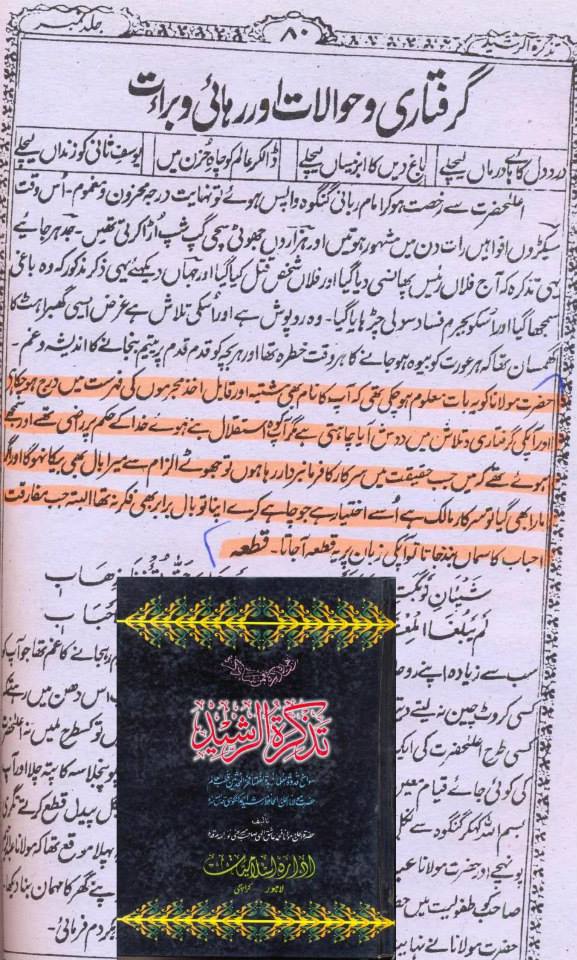 تذکرۃ الرشید ۸۰ جلد نمبر
گرفتاری و حوالات اور رہائی و براءت
درد دل کا ہے درماں لیچلے باغ دیں کا ابر نیساں لیچلے ڈالکر عالم کو چاہ حزن میں یوسف ثانی کو زنداں لیچلے
اعلیٰحضرت سے رخصت ہوکر امام ربانی گنگوہ واپس ہوئے تو نہایت درجہ محزون و مغموم۔ اُس وقت
سیکڑوں افواہیں رات دن میں مشہور ہوتیں اور ہزاروں جھوٹی سچی گپ شپ اُڑا کرتی تھیں۔ جدہر جایئے
یہی تذکرہ کہ آج فلاں رئیس پھانسی دیا گیا اور فلاں شخص قتل کیا گیا اور جہاں دیکھئے یہی ذکر مذکور کہ وہ باغی
سمجھا گیا اور اسکو بجرم فساد سولی چڑہایا گیا۔ وہ روپوش ہے اور اُسکی تلاش ہے غرض ایسی گھبراہٹ کا
گھمسان تھا کہ ہر عورت کو بیوہ ہوجانے کا ہر وقت خطرہ تھا اور ہر بچہ کو قدم قدم پر یتیم بنجانے کا اندیشہ و غم۔
حضرت مولانا کو یہ بات معلوم ہوچکی تھی کہ آپ کا نام بھی مشتبہ اور قابل اخذ مجرموں کی فہرست میں درج ہوچکا
اور آپکی گرفتاری و تلاش میں دوش آیا چاہتی ہے مگر آپ کوہ استقلال بنے ہوئے خدا کے حکم پر راضی تھے اور سمجھے
ہوئے تھے کہ میں جب حقیقت میں سرکار کا فرمانبردار رہا ہوں تو جھوٹے الزام سے میرا بال بھی بیکا نہوگا اور اگر
مارا بھی گیا تو سرکار مالک ہے اُسے اختیار ہے جو چاہے کرے اپنا تو بال برابر بھی فکر نہ تھا البتہ جب مفارقت
احباب کا سماں بندھ جاتا تو آپکی زبان پر یہ قطعہ آجاتا۔ قطعہ
شَیْئَانِ لَوْ بَکَتْ
لَمْ یَبْلُغَا الْمِعْ
سب سے زیادہ اپنے
کسی کروٹ چین نہ لیتے
کسی طرح اعلیٰحضرت کی
کی کوئی جائے قیام
بسم اللہ کہکر گنگوہ سے
پونہچے اور حضرت مولانا
صاحب کو طفولیت میں
حضرت مولانا نے
تذکرۃ الرشید
ادارہ اسلامیات
لاہور کراچی